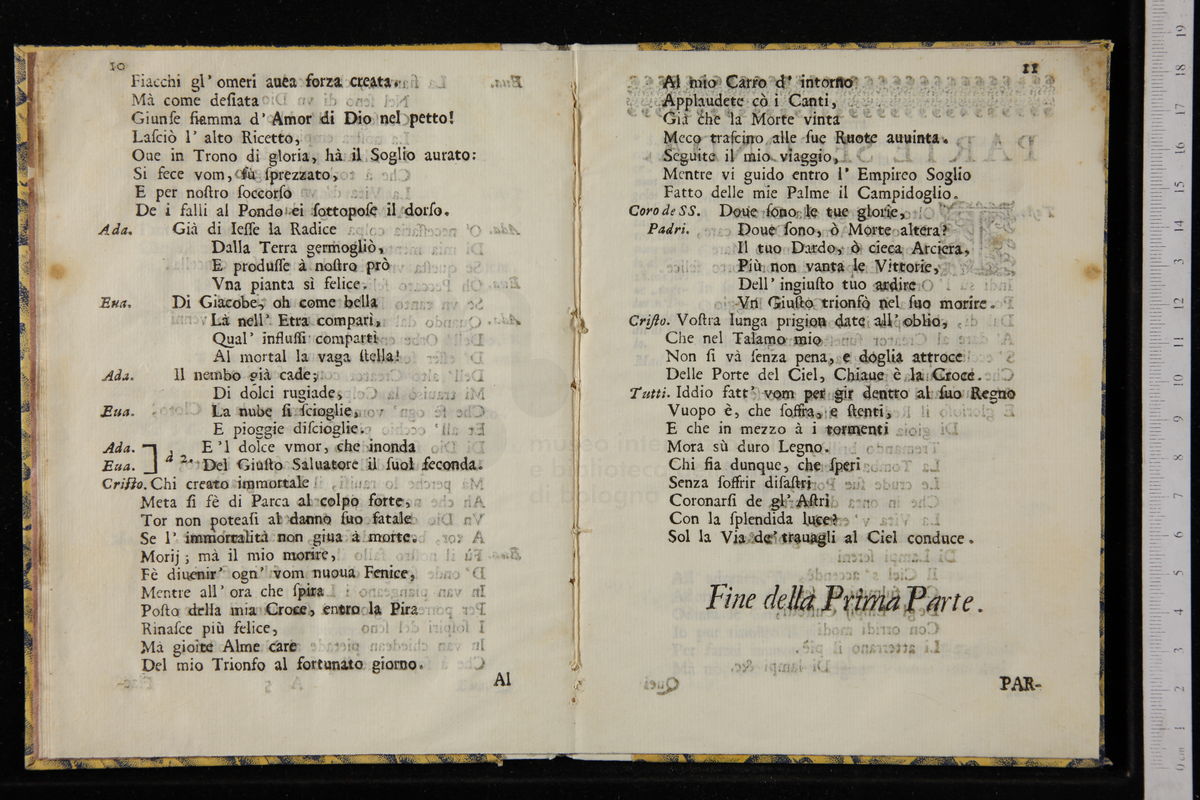 10
Fiacchi gl' omeri auea forza creata.
Mà come desiata
Giunse fiamma d' Amor di Dio nel petto!
Lasciò l' alto Ricetto,
Oue in Trono di gloria, hà il Soglio aurato:
Si fece vom, fù sprezzato,
E per nostro soccorso
De i falli al Pondo ei sottopose il dorso.
Ada. Già di Iesse la Radice
Dalla Terra germogliò,
E produsse à nostro prò
Vna pianta sì felice.
Eua. Di Giacobe, oh come bella
Là nell' Etra comparì,
Qual' influssi compartì
Al mortal la vaga stella!
Ada. Il nembo già cade;
Di dolci rugiade,
Eua. La nube si scioglie,
E pioggie discioglie.
Ada. E 'l dolce vmor, che inonda
Eua. à 2. Del Giusto Saluatore il suol feconda.
Cristo. Chi creato immortale
Meta si fè di Parca al colpo forte,
Tor non poteasi al danno suo fatale
Se l' immortalità non giua à morte.
Morij; mà il mio morire,
Fè diuenir' ogn' vom nuoua Fenice,
Mentre all' ora che spira
Posto della mia Croce, entro la Pira
Rinasce più felice,
Ma gioite Alme care
Del mio Trionfo al fortunato giorno.
Al
11
Al mio Carro d' intorno
Applaudete cò i Canti,
Già che la Morte vinta
Meco trascino alle sue Ruote auuinta.
Seguite il mio viaggio,
Mentre vi guido entro l' Empireo Soglio
Fatto delle mie Palme il Campidoglio.
Coro de SS. Doue sono le tue glorie,
Padri. Doue sono, ò Morte altera?
Il tuo Dardo, ò cieca Arciera,
Più non vanta le Vittorie,
Dell' ingiusto tuo ardire
Vn Giusto trionfò nel suo morire.
Cristo. Vostra lunga prigion date all' oblio,
Che nel Talamo mio
Non si và senza pena, e doglia attroce
Delle Porte del Ciel, Chiaue è la Croce.
Tutti. Iddio fatt' vom per gir dentro al suo Regno
Vuopo è, che soffra, e stenti,
E che in mezzo à i tormenti
Mora sù duro Legno.
Chi fia dunque, che speri
Senza soffrir disastri
Coronarsi de gl' Astri
Con la splendida luce?
Sol la Via de' trauagli al Ciel conduce.
Fine della Prima Parte.
PAR-